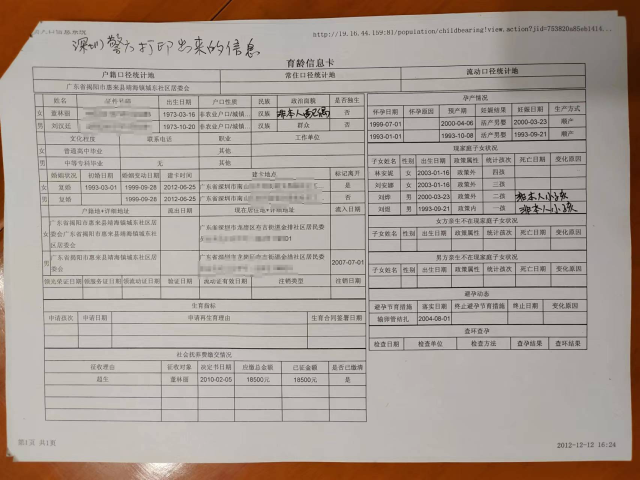 http://19.16.44.159:81/population/childbearing!view.action?jid=753820a85eb1414...
深圳警方打印出来的信息
育龄信息卡
户籍口径统计地 常住口径统计地 流动口径统计地
广东省揭阳市惠来县靖海镇城东社区居委会
姓名 出生日期 户口性质 民族 政治面貌 是否独生
女 1973-03-16 非农业户口/城镇 汉族 否
男 1973-10-20 非农业户口/城镇 汉族 群众 否
文化程度 联系电话 职业 工作单位
女 普通高中毕业 其他
男 中等专科毕业 无 其他
婚姻状况 初婚日期 婚姻变动日期 建卡时间 建卡地点 标记离开
女 复婚 1993-03-01 1999-09-28 2012-06-25 广东省深圳市南山 否
男 复婚 1999-09-28 2012-06-25 广东省深圳市南山 否
户籍地+详细地址 流出日期 现在居住地+详细地址 流入日期
女 广东省揭阳市惠来县靖海镇城东社区居委会
男 广东省揭阳市惠来县靖海镇城东社区居委会 2007-07-01
领光荣证日期 领服务证日期 领流动证日期 验证日期 流动证有效日期 注销类型 注销日期
生育指标
申请孩次 申请日期 申请再生育理由 生育合同签署日期
社会抚养费缴交情况
征收理由 征收对象 决定书日期 应缴总金额 已征金额 是否已缴清
超生 董林丽 2010-02-05 18500元 18500元 是
孕产情况
怀孕日期 怀孕原因 预产期 妊娠结果 妊娠日期 生产方式
1999-07-01 2000-04-06 活产男婴 2000-03-23 顺产
1993-01-01 1993-10-08 活产男婴 1993-09-21 顺产
现家庭子女状况
子女姓名 性别 出生日期 政策属性 统计孩次 死亡日期 变化原因
林安妮 女 2003-01-16 政策外 四孩
刘安娜 女 2003-01-16 政策外 三孩
刘烨 男 2000-03-23 政策外 二孩 非本人小孩
男 1993-09-21 政策内 一孩 非本人小孩
女方亲生不在现家庭子女状况
子女姓名 性别 出生日期 政策属性 统计孩次 死亡日期 变化原因
男方亲生不在现家庭子女状况
子女姓名 性别 出生日期 政策属性 统计孩次 死亡日期 变化原因
避孕动态
避孕节育措施 落实日期 终止避孕节育措施 终止日期 变化原因
输卵管结扎 2004-08-01
查环查孕
检查日期 检查单位 检查方法 查孕结果 查环结果
第1页 共1页
2012-12-12 16:24